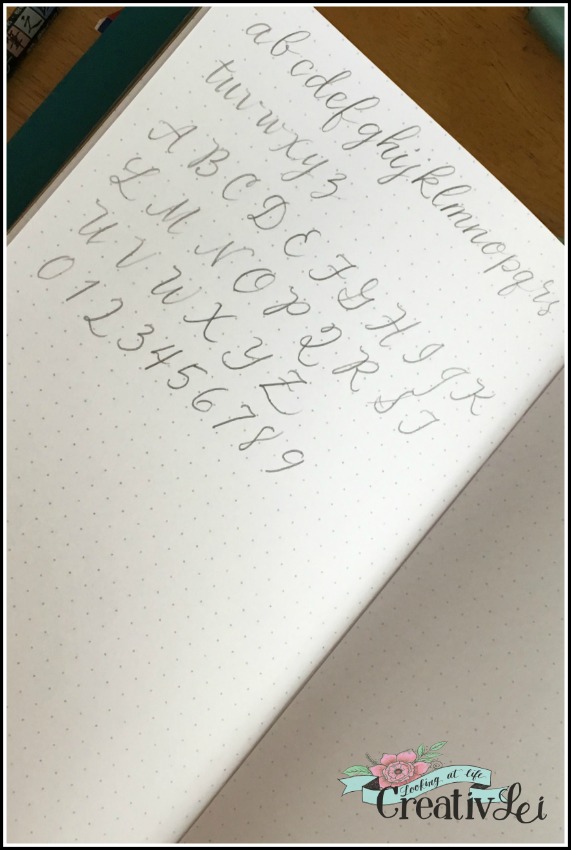 abcdefghijklmnopqrs
tuvwxyz
A B C D E F G H I J K
L M N O P Q R S T
U V W X Y Z
0 1 2 3 4 5 6 7 8 9
Looking at life
CreativLei